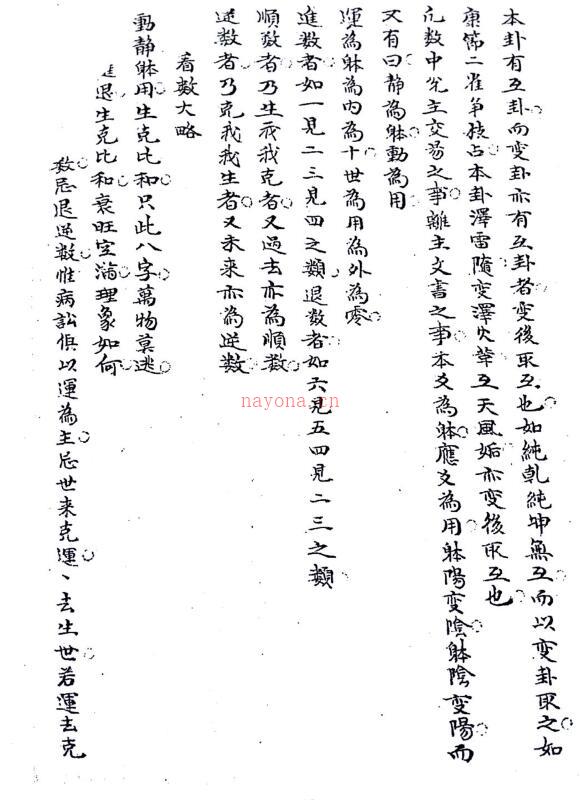 本卦有互卦而变卦亦有互卦者变後取互也如純乹純坤無互而以变卦取之如
康節二雀争枝占本卦澤雷隨变澤火革互天風姤亦变後取互也
凢数中兑主交易之事離主文書之事本爻為躰應爻為用躰陽变陰躰陰变陽而
又有曰静為躰動為用
運為躰為内為十世為用為外為零
進数者如一見二三見四之類退数者如六見五四見二三之類
順数者乃生我我克者又過去亦為順数
逆数者乃克我我生者又未来亦為逆数
看数大略
動静躰用生克比和只此八字萬物莫逃
退生克比和衰旺空滿理象如何
数忌退逆数惟病訟俱以運為主忌世来克運、去生世若運去克
nayona.cn